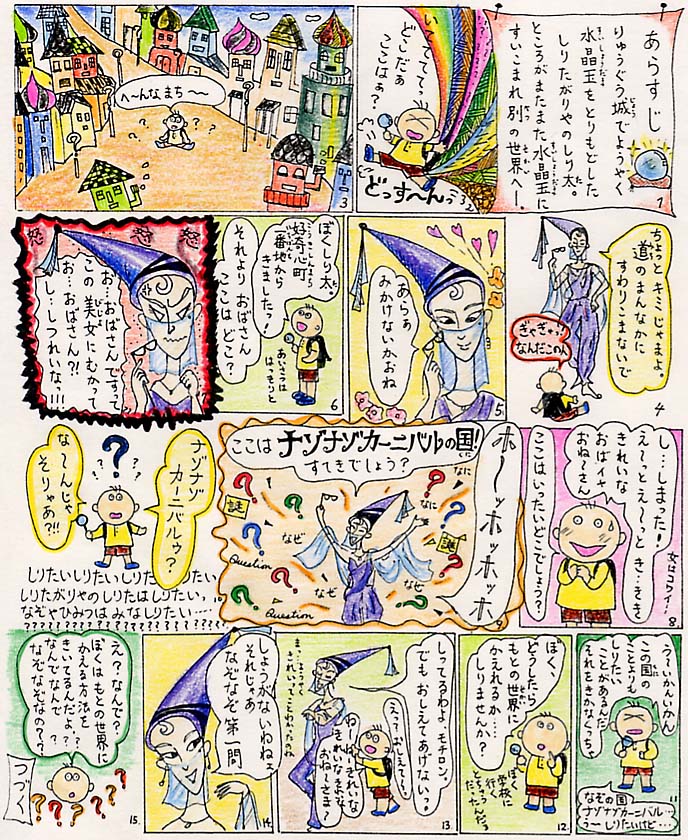 あらすじ
りゅうぐう城でようやく
水晶玉をとりもどした
しりたがりやのしり太。
ところがまたまた水晶玉に
すいこまれ別の世界へ…
1
いててて…
どこだぁ
ここはぁ?
どっす〜んっ
2
へ〜んなまち〜
3
ちょっとキミじゃまよ。
道のまんなかに
すわりこまないで
ぎゃぎゃっ!
なんだこのヘ
4
あらぁ
みかけないかおね
5
ぼくしり太。
好奇心町
一番地から
きましたっ!
それよりおばさん
ここはどこ?
あいさつは
はっきりと
6
怒
怒
お…おばさんですって
この美女にむかって
お…おばさん?!
し…しつれいな…!!!
し…しまった!
え〜っとえ〜っとき…きき
きれいな
おばイヤ
おね〜さん
ここはいったいどこでしょう?
女はコワイ…
8
ホ〜ッホッホッホ
ここはナゾナゾカーニバルの国!
すてきでしょう?
なに
なに
謎
謎
なぜ
なぜ
なぜ
Question
Question
9
ナゾナゾ
カーニバルゥ?
な〜んじゃ
そりゃあ?!!
しりたいしりたいしりたいしりたい
しりたがりやのしりたはしりたい、
なぞやひみつはみなしりたい…
う〜いかんいかん
この国の
ことよりも
しりたい
ことがあるんだ
それをきかなくっちゃ
なぞの国
ナゾナゾカーニバル…
う〜しりたいけど…
11
ぼく、
どうしたら
もとの世界に
かえれるか…
しりませんか?
ぼく
学校に
行く
とちゅう
だったんだ
12
しってるわよ。モチロン。
でもおしえてあげないっ
えーっおしえて〜っ
ねーねーきれいな
きれいなまぶしい
おね〜さま?
ま、ようやく
きれいってことわかったのね
13
しょうがないわねぇ
それじゃあ
なぞなぞ第一問
14
え?なんで?
ぼくはもとの世界に
かえる方法を
きいてるんだよ?
なんでなんで?
なぞなぞなの??
つづく
15